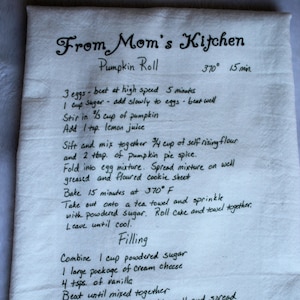 From Mom's Kitchen
Pumpkin Roll 370° 15 min.
3 eggs - beat at high speed 5 minutes
1 cup sugar - add slowly to eggs - beat well
Stir in ⅔ cup of pumpkin
Add 1 tsp lemon juice
Sift and mix together ¾ cup of self rising flour
and 2 tbsp. of pumpkin pie spice.
Fold into egg mixture. Spread mixture on well
greased and floured cookie sheet
Bake 15 minutes at 370° F
Take out onto a tea towel and sprinkle
with powdered sugar. Roll cake and towel together.
Leave until cool.
Filling
Combine 1 cup powdered sugar
1 large package of cream cheese
4 tbsp. of vanilla
Beat until mixed together
and spread